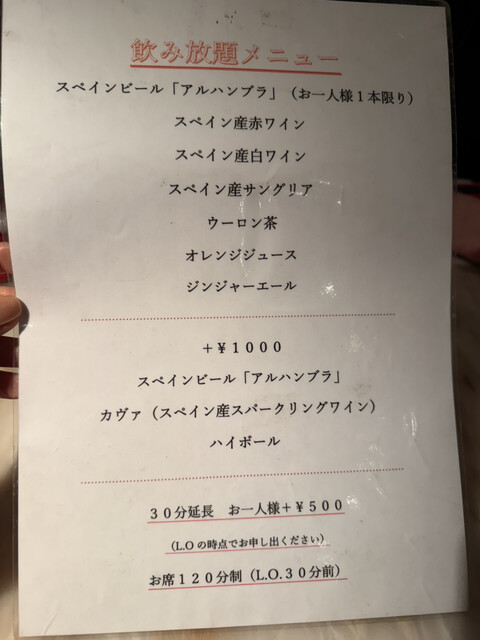 飲み放題メニュー
スペインビール「アルハンブラ」（お一人様１本限り）
スペイン産赤ワイン
スペイン産白ワイン
スペイン産サングリア
ウーロン茶
オレンジジュース
ジンジャーエール
＋￥１０００
スペインビール「アルハンブラ」
カヴァ（スペイン産スパークリングワイン）
ハイボール
３０分延長　お一人様＋￥５００
（L.O の時点でお申し出ください）
お席１２０分制（L.O.３０分前）